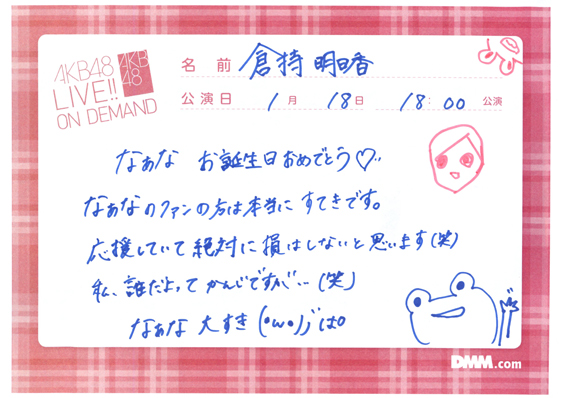 AKB48
LIVE!!
ON DEMAND
AKB
48
名 前 倉持 明日香
公演日 1月 18日 18:00 公演
なぁな お誕生日おめでとう♡
なぁなのファンの方は本当に すてきです。
応援していて 絶対に 損はしないと思います(笑)
私、誰だよって かんじですが… (笑)
なぁな 大すき (•ω•)ノ゛ぱ
DMM.com